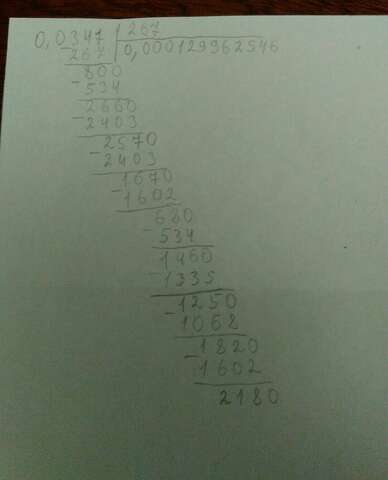 0,0347 267
-267 0,000129962546
800
-534
2660
-2403
2570
-2403
1670
-1602
680
-534
1460
-1335
1250
-1068
1820
-1602
2180